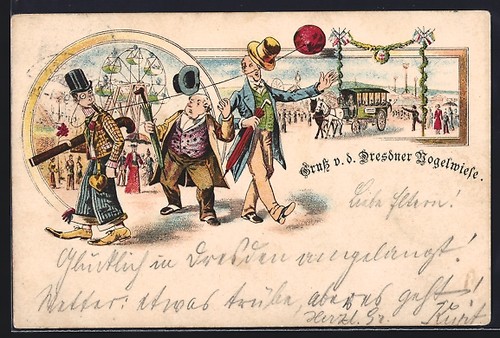 Gruß v. d. Dresdner Vogelwiese.
Liebe Eltern!
Glücklich in Dresden angelangt!
Wetter: etwas trübe, aber es geht!
Herzl. Gr. Kurt